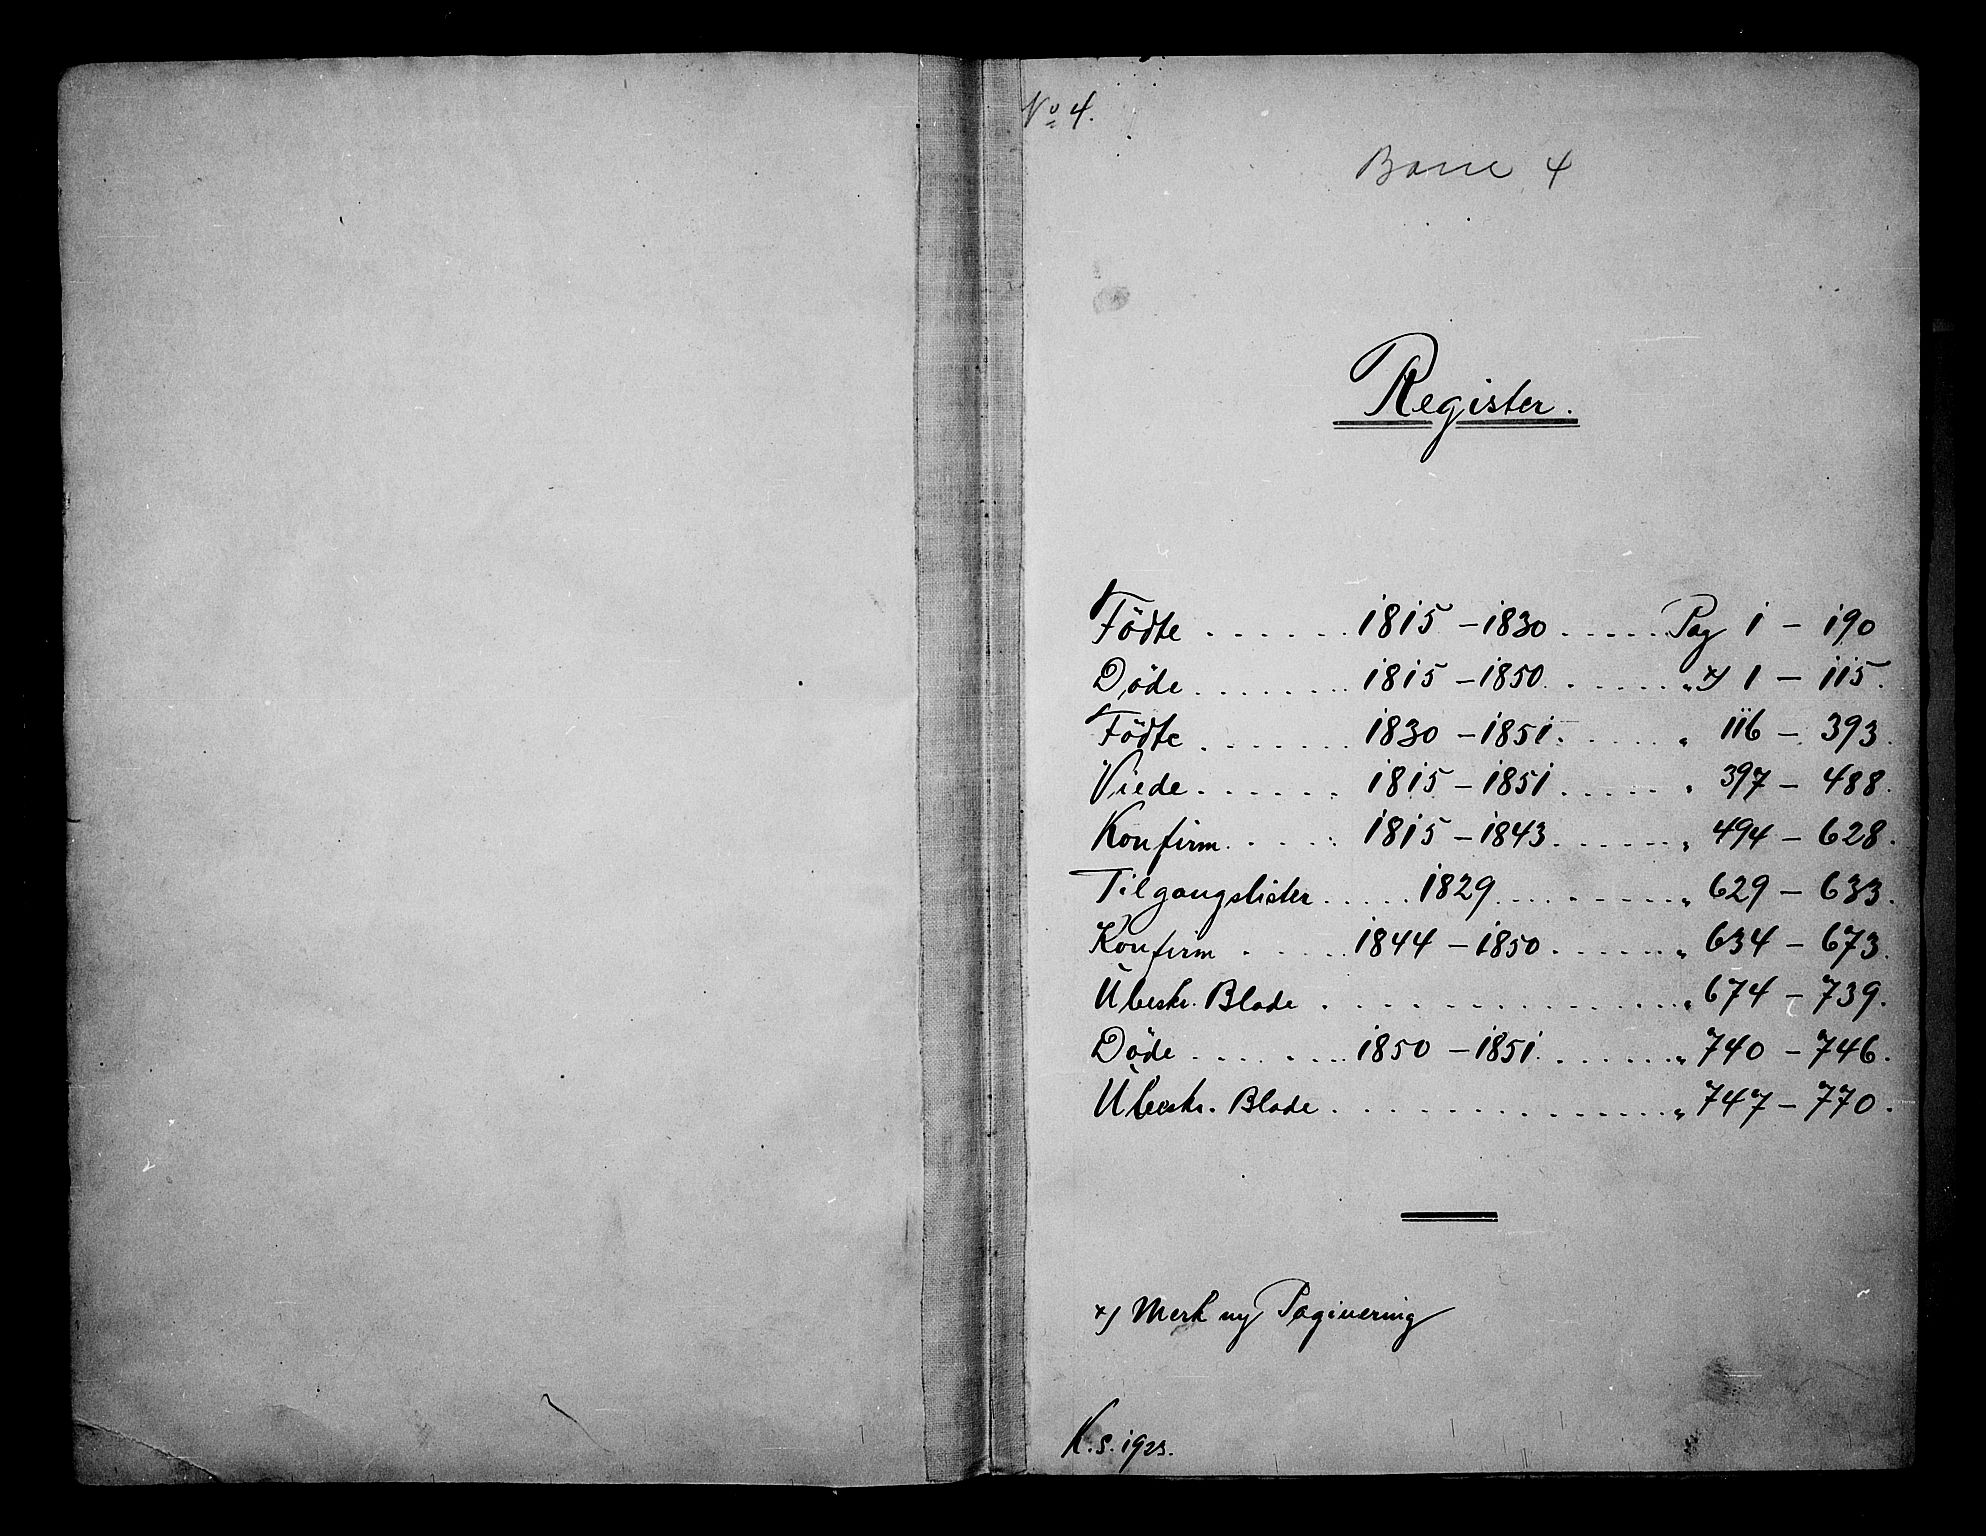 No 4.
Borre 4
Register.
Födte . . . . . . 1815 – 1830 . . . . . Pag 1 – 190
Döde . . . . . . . 1815 – 1850 . . . . . . „ x) 1 – 115.
Födte . . . . . . . 1830 – 1851 . . . . . . „ 116 – 393.
Viede . . . . . . . 1815 – 1851 . . . . . . „ 397 – 488.
Konfirm. . . . . . 1815 – 1843 . . . . . . „ 494 – 628.
Tilgangslister . . . . . 1829 . . . . . . . . „ 629 – 633.
Konfirm . . . . . 1844 – 1850 . . . . . . „ 634 – 673.
Ubeskr. Blade . . . . . . . . . . . . . . „ 674 – 739.
Döde . . . . . . . 1850 – 1851 . . . . . . „ 740 – 746.
Ubeskr. Blade . . . . . . . . . . . . . . „ 747 – 770.
x) Merk ny Paginering
K.S. 1923.